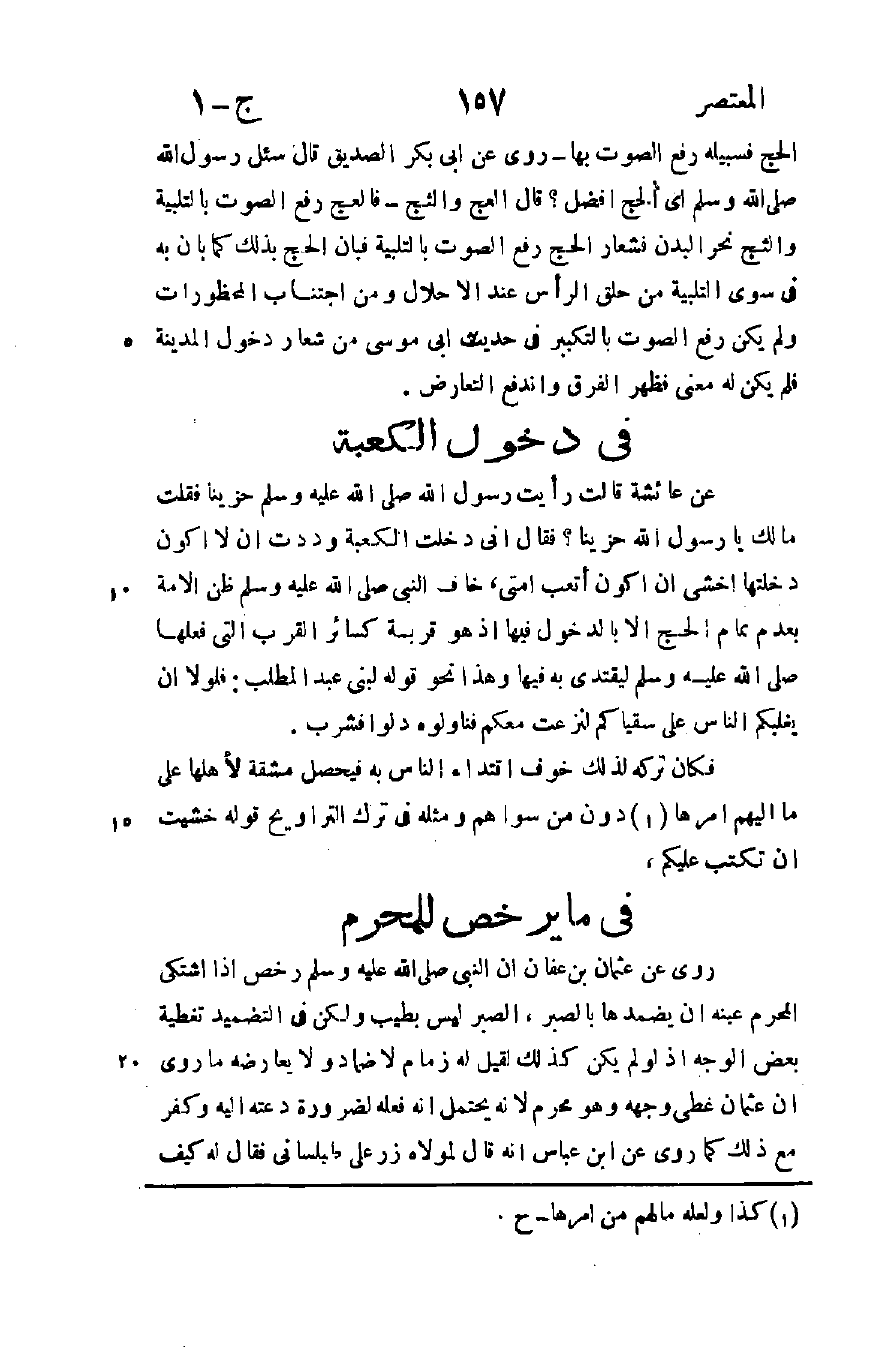 المعتصر ١٥٧ ج-١
الحج فسبيله رفع الصوت بها- روى عن ابى بكر الصديق قال سئل رسول الله
صلى الله وسلم اى ألحج افضل؟ قال العج والثج - فالعج رفع الصوت بالتلبية
والثج نحر البدن فشعار الحج رفع الصوت بالتلبية فبان الحج بذلك كما بان به
فى سوى التلبية من حلق الرأس عند الاحلال ومن اجتناب المحظورات
ولم يكن رفع الصوت بالتكبير فى حديث ابى موسى من شعار دخول المدينة ٥
فلم يكن له معنى فظهر الفرق واندفع التعارض .
فى دخول الكعبة
عن عائشة قالت رأيت رسول الله صلى الله عليه وسلم حزينا فقلت
مالك يا رسول الله حزينا؟ فقال انى دخلت الكعبة وددت ان لا اكون
دخلتها اخشى ان اكون أتعب امتى، خاف النبى صلى الله عليه وسلم ظن الامة ١٠
بعدم تمام الحج الا بالدخول فيها اذ هو قربة كسائر القرب التى فعلها
صلى الله عليه وسلم ليقتدى به فيها وهذا نحو قوله لبنى عبد المطلب: فلولا ان
يغلبكم الناس على سقياكم لنزعت معكم فناولوه دلوا فشرب .
فكان تركه لذلك خوف اقتداء الناس به فيحصل مشقة لأهلها على
ما اليهم امرها (١) دون من سواهم ومثله فى ترك التراويح قوله خشيت ١٥
ان تكتب عليكم ،
فى ما يرخص للمحرم
روى عن عثمان بن عفان ان النبى صلى الله عليه وسلم رخص اذا اشتكى
المحرم عينه ان يضمدها بالصبر ، الصبر ليس بطيب ولكن فى التضميد تغطية
بعض الوجه اذ لو لم يكن كذلك لقيل له زمام لا ضماد ولا يعارضه ما روى ٢٠
ان عثمان غطى وجهه وهو محرم لانه يحتمل انه فعله لضرورة دعته اليه وكفر
مع ذلك كما روى عن ابن عباس انه قال لمولاه زر على طيلسانى فقال له كيف
(١) كذا ولعله مالهم من امرها- ح .